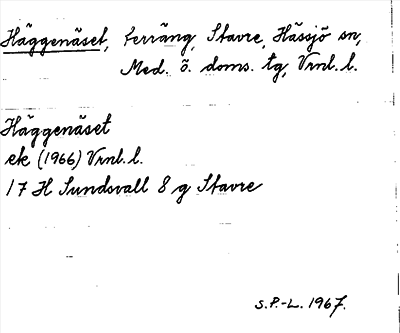 Häggenäset, terräng, Stavre, Hässjö sn,
Med. ö. doms. tg, Vrnl. l.
Häggenäset
ek (1966) Vrnl. l.
17 H Sundsvall 8 g Stavre
S.P.-L. 1967.